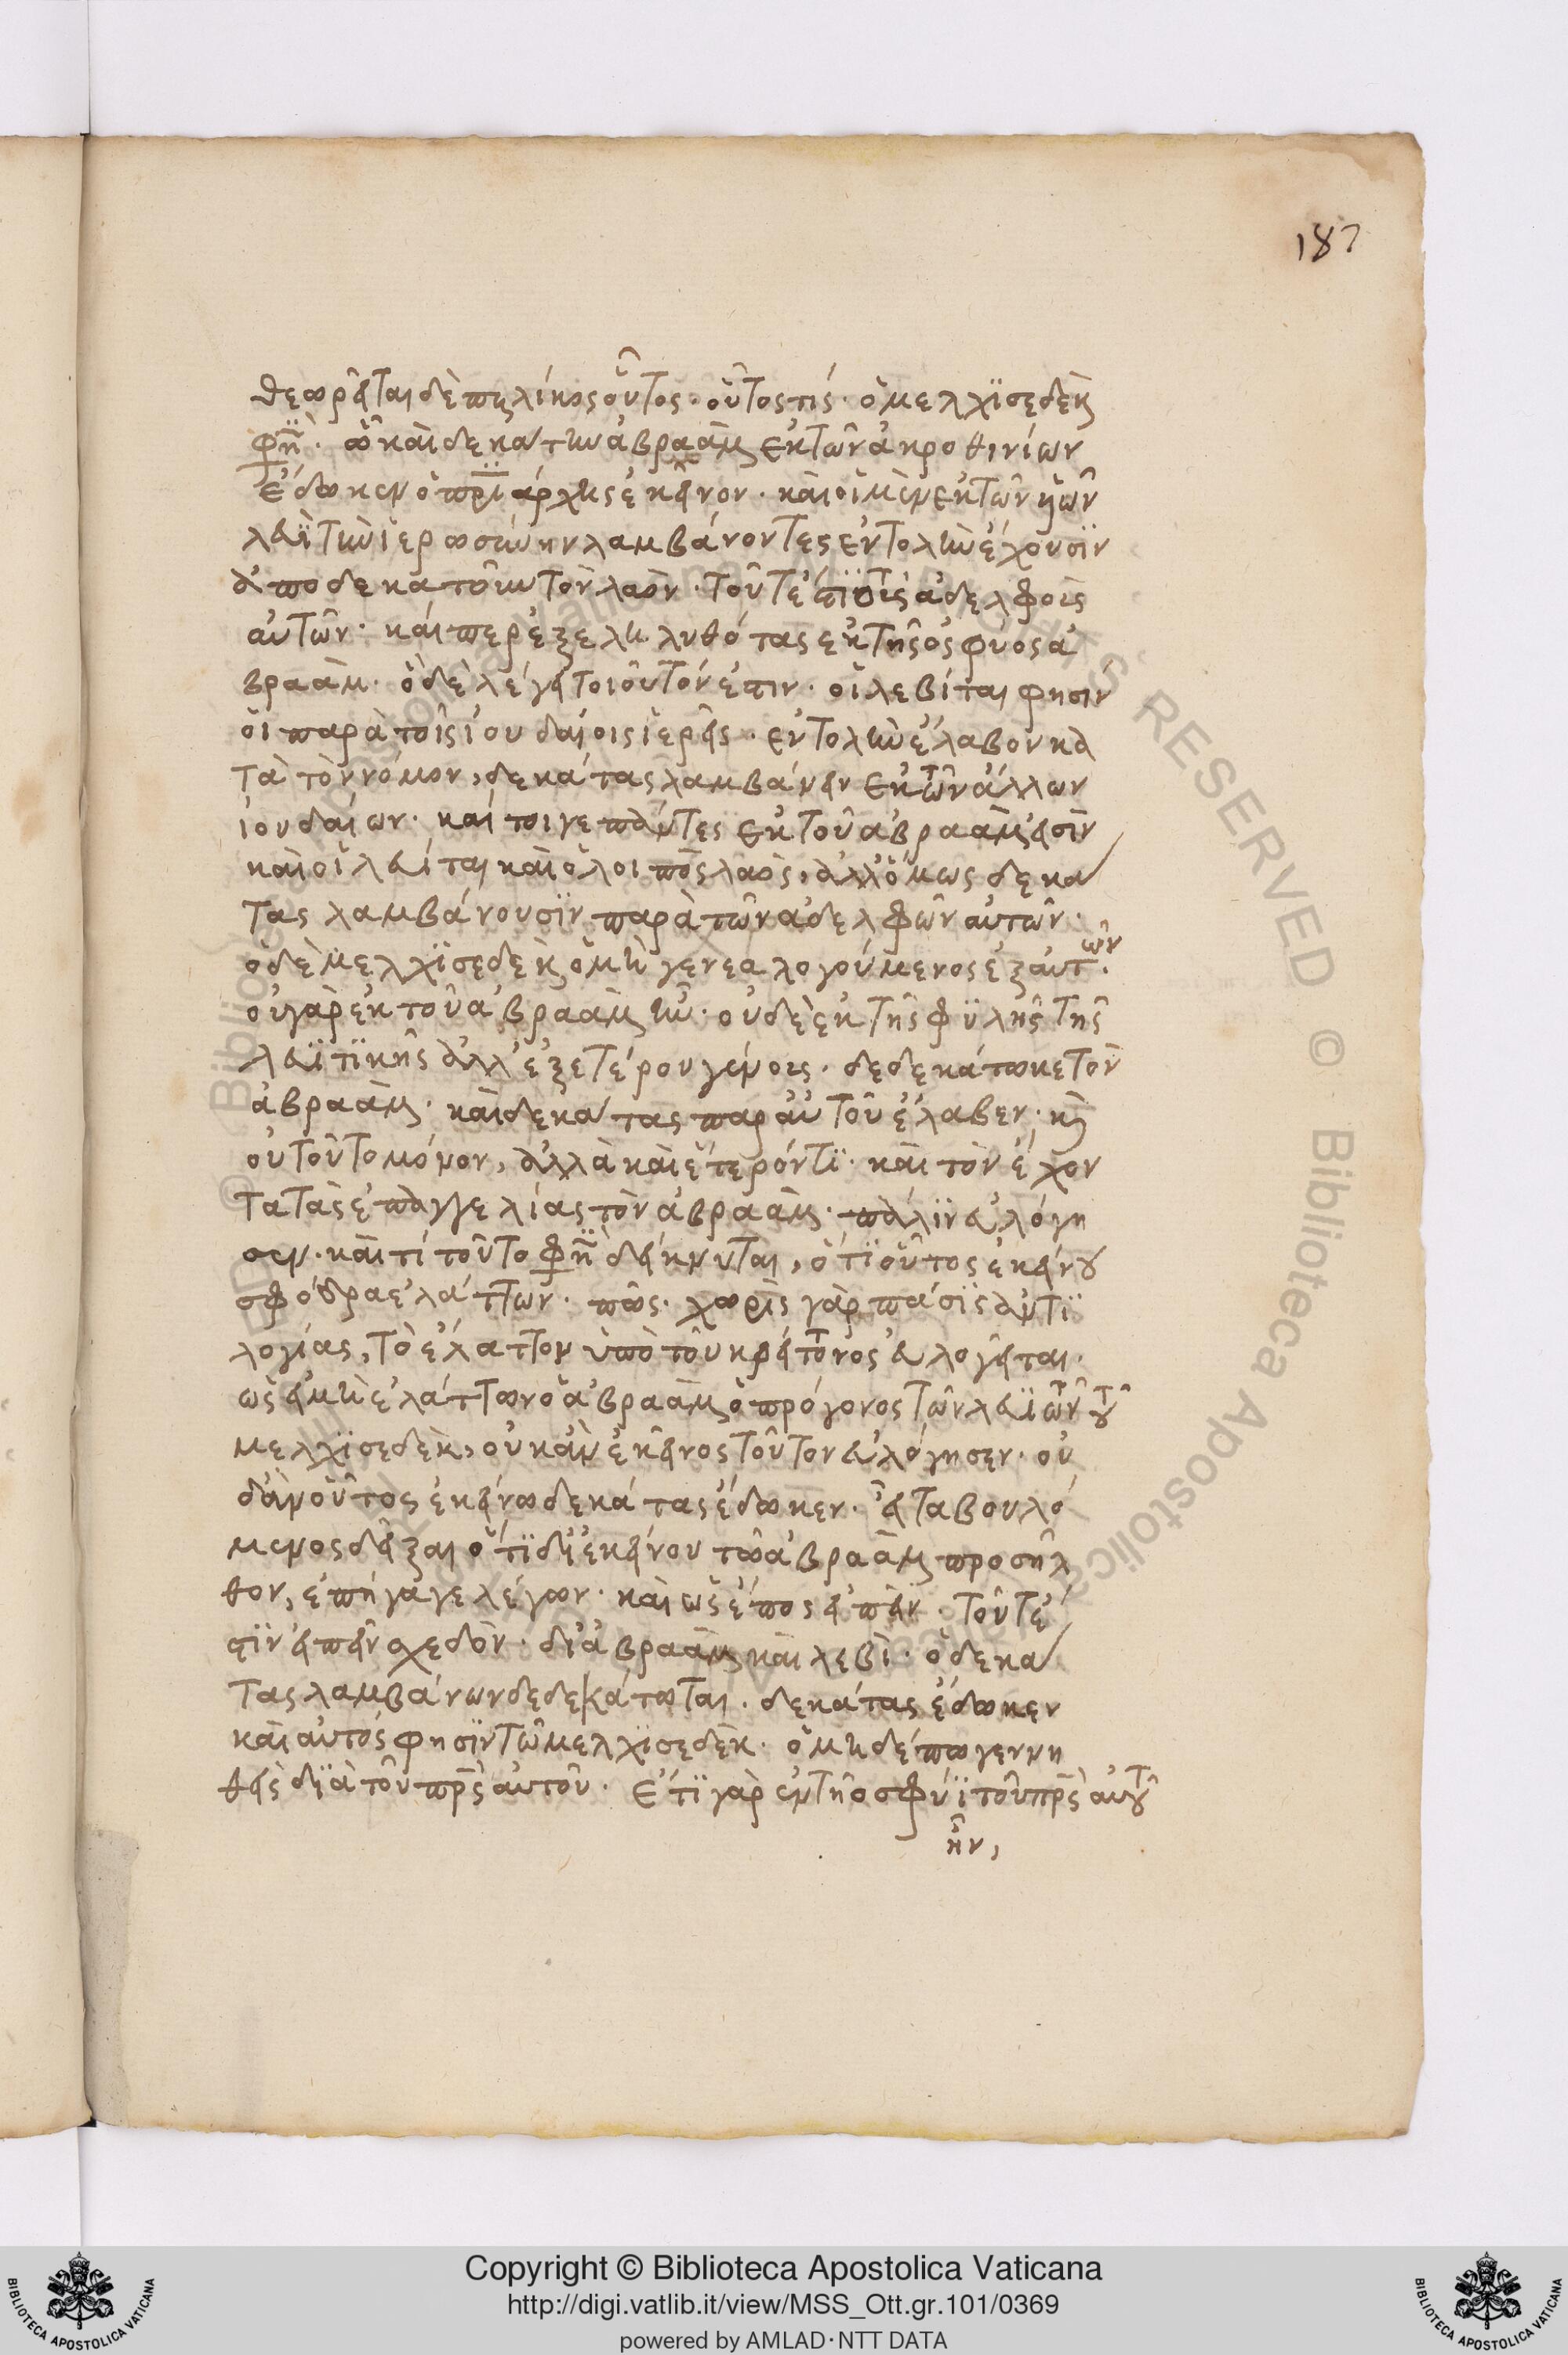 187
θεωρεῖται δὲ πηλίκος οὗτος· οὗτος τίς· ὁ μελχϊσεδὲκ
φη̅ῒ· ὧ καὶ δεκάτην ἀβραὰμ ἐκ τῶν ἀκροθινίων
ἔδωκεν ὁ πρϊάρχης ἐκεῖνον· καὶ οἱ μὲν ἐκ τῶν ϋἱῶν
λευῒ τὴν ἱερωσύνην λαμβάνοντες ἐντολὴν ἔχουσϊν
ἀποδεκατοῦν τὸν λαὸν· τοῦτέστϊ τοὶς ἀδελφοὶς
αὐτῶν· καίπερ ἐξεληλυθότας ἐκ τῆς ὀσφύος ἀ
βραὰμ· ὃ δὲ λέγει τοιοῦτόν ἐστιν· οἱ λεβίται φησὶν
οἱ παρὰ τοῖς ἰουδαίοις ἱερεῖς· ἐντολὴν ἔλαβον κα
τὰ τὸν νόμον, δεκάτας λαμβάνειν ἐκ τῶν ἄλλων
ἰουδαίων· καί τοιγε πάντες ἐκ τοῦ ἀβραάμ εἰσὶν
καὶ οἱ λευίται καὶ ὁ λοιπὸς λαὸς, ἀλλ' ὅμως δεκά
τας λαμβάνουσϊν παρὰ τῶν ἀδελφῶν αὐτῶν·
ὁ δὲ μελχϊσεδὲκ ὁ μὴ γενεαλογούμενος ἐξ αὐτῶν·
οὐ γὰρ ἐκ τοῦ ἀβραὰμ ἦν· οὐδὲ ἐκ τῆς φϋλῆς τῆς
λευϊτϊκῆς ἀλλ' ἐξ ἑτέρου γένους· δεδεκάτωκε τὸν
ἀβραὰμ· καὶ δεκάτας παρ' αὐτοῦ ἔλαβεν· κ̀
οὐ τοῦτο μόνον, ἀλλὰ καὶ ἕτερόν τϊ· καὶ τὸν ἔχον
τα τὰς ἐπαγγελίας τὸν ἀβραὰμ· πάλϊν εὐλόγη
σεν· καὶ τί τοῦτο φη̅ῒ δείκνυται, ὅτϊ οὗτος ἐκείνου
σφόδρα ἐλάττων· πῶς· χωρὶς γὰρ πάσϊς ἀντϊ
λογίας, τὸ ἔλαττον ὑπὸ τοῦ κρείττονος εὐλογεῖται·
ὡς εἰ μὴ ἐλάττων ὁ ἀβραὰμ ὁ πρόγονος τῶν λευϊτῶν τοῦ
μελχϊσεδὲκ, οὐκ ἀν ἐκεῖνος τοῦτον εὐλόγησεν· οὐ
δ' ἀν οὗτος ἐκείνω δεκάτας ἔδωκεν· εἶτα βουλό
μενος δεῖξαι ὅτϊ δι' ἐκείνου τῶ ἀβραὰμ προσῆλ
θον, ἐπήγαγε λέγων· καὶ ὡς ἔπος εἰπεῖν· τοῦτέ
στϊν εἰπεῖν σχεδὸν· δι' ἀβραὰμ καὶ λεβὶ· ὁ δεκά
τας λαμβάνων δεδεκάτωται· δεκάτας ἔδωκεν
καὶ αὐτός φησϊν τῶ μελχϊσεδὲκ· ὁ μηδέπω γεννη
θεὶς δϊὰ τοῦ πρ̅ς̀ αὐτοῦ· ἔτϊ γὰρ ἐν τῆ ὀσφύϊ τοῦ πρ̅ς̀ αὐτοῦ
ἦν,
Copyright © Biblioteca Apostolica Vaticana
http://digi.vatlib.it/view/MSS_Ott.gr.101/0369
powered by AMLAD·NTT DATA